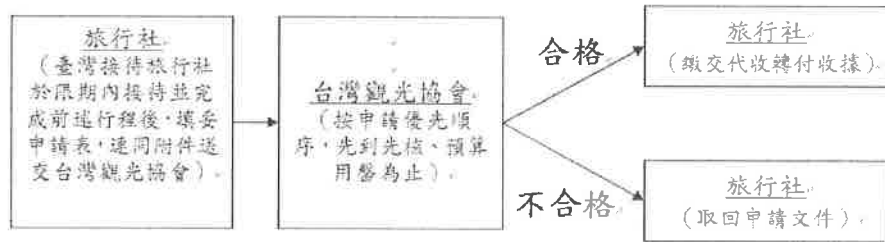 旅行社
（臺灣接待旅行社
於限期內接待並完
成前述行程後，填妥
申請表，連同附件送
交台灣觀光協會）。
台灣觀光協會
（按申請優先順
序，先到先核、預算
用罄為止）。
合格
不合格
旅行社
（繳交代收轉付收據）
旅行社
（取回申請文件）。